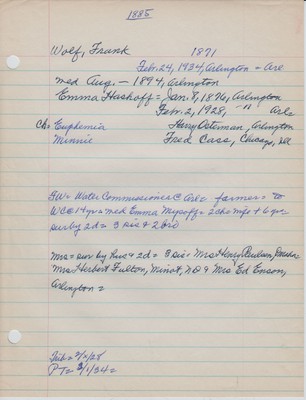 1885
Wolf, Frank 1871
Feb. 24, 1934, Arlington - Arl
med Aug. - 1894, Arlington
Emma Hashoff = Jan. 8, 1876, Arlington
Feb. 2, 1928, " Arl=
Ch = Euphemia Harry Osterman, Arlington
Minnie Fred Cass, Chicago, Ill
FW = Water Commissioner @ Arl = farmer = to
WC @ 14 yr = med Emma = 2 ch = wife + 6 yrs
sur by 2d = 3 sis & 2 bro
Mrs = sur by hus & 2d = 3 sis = Mrs Henry Paulsen,
Mrs Herbert Fulton, Minot, ND & Mrs Ed Enson,
Arlington =
Trib = 2/ /28
PT = 3/1/34 =